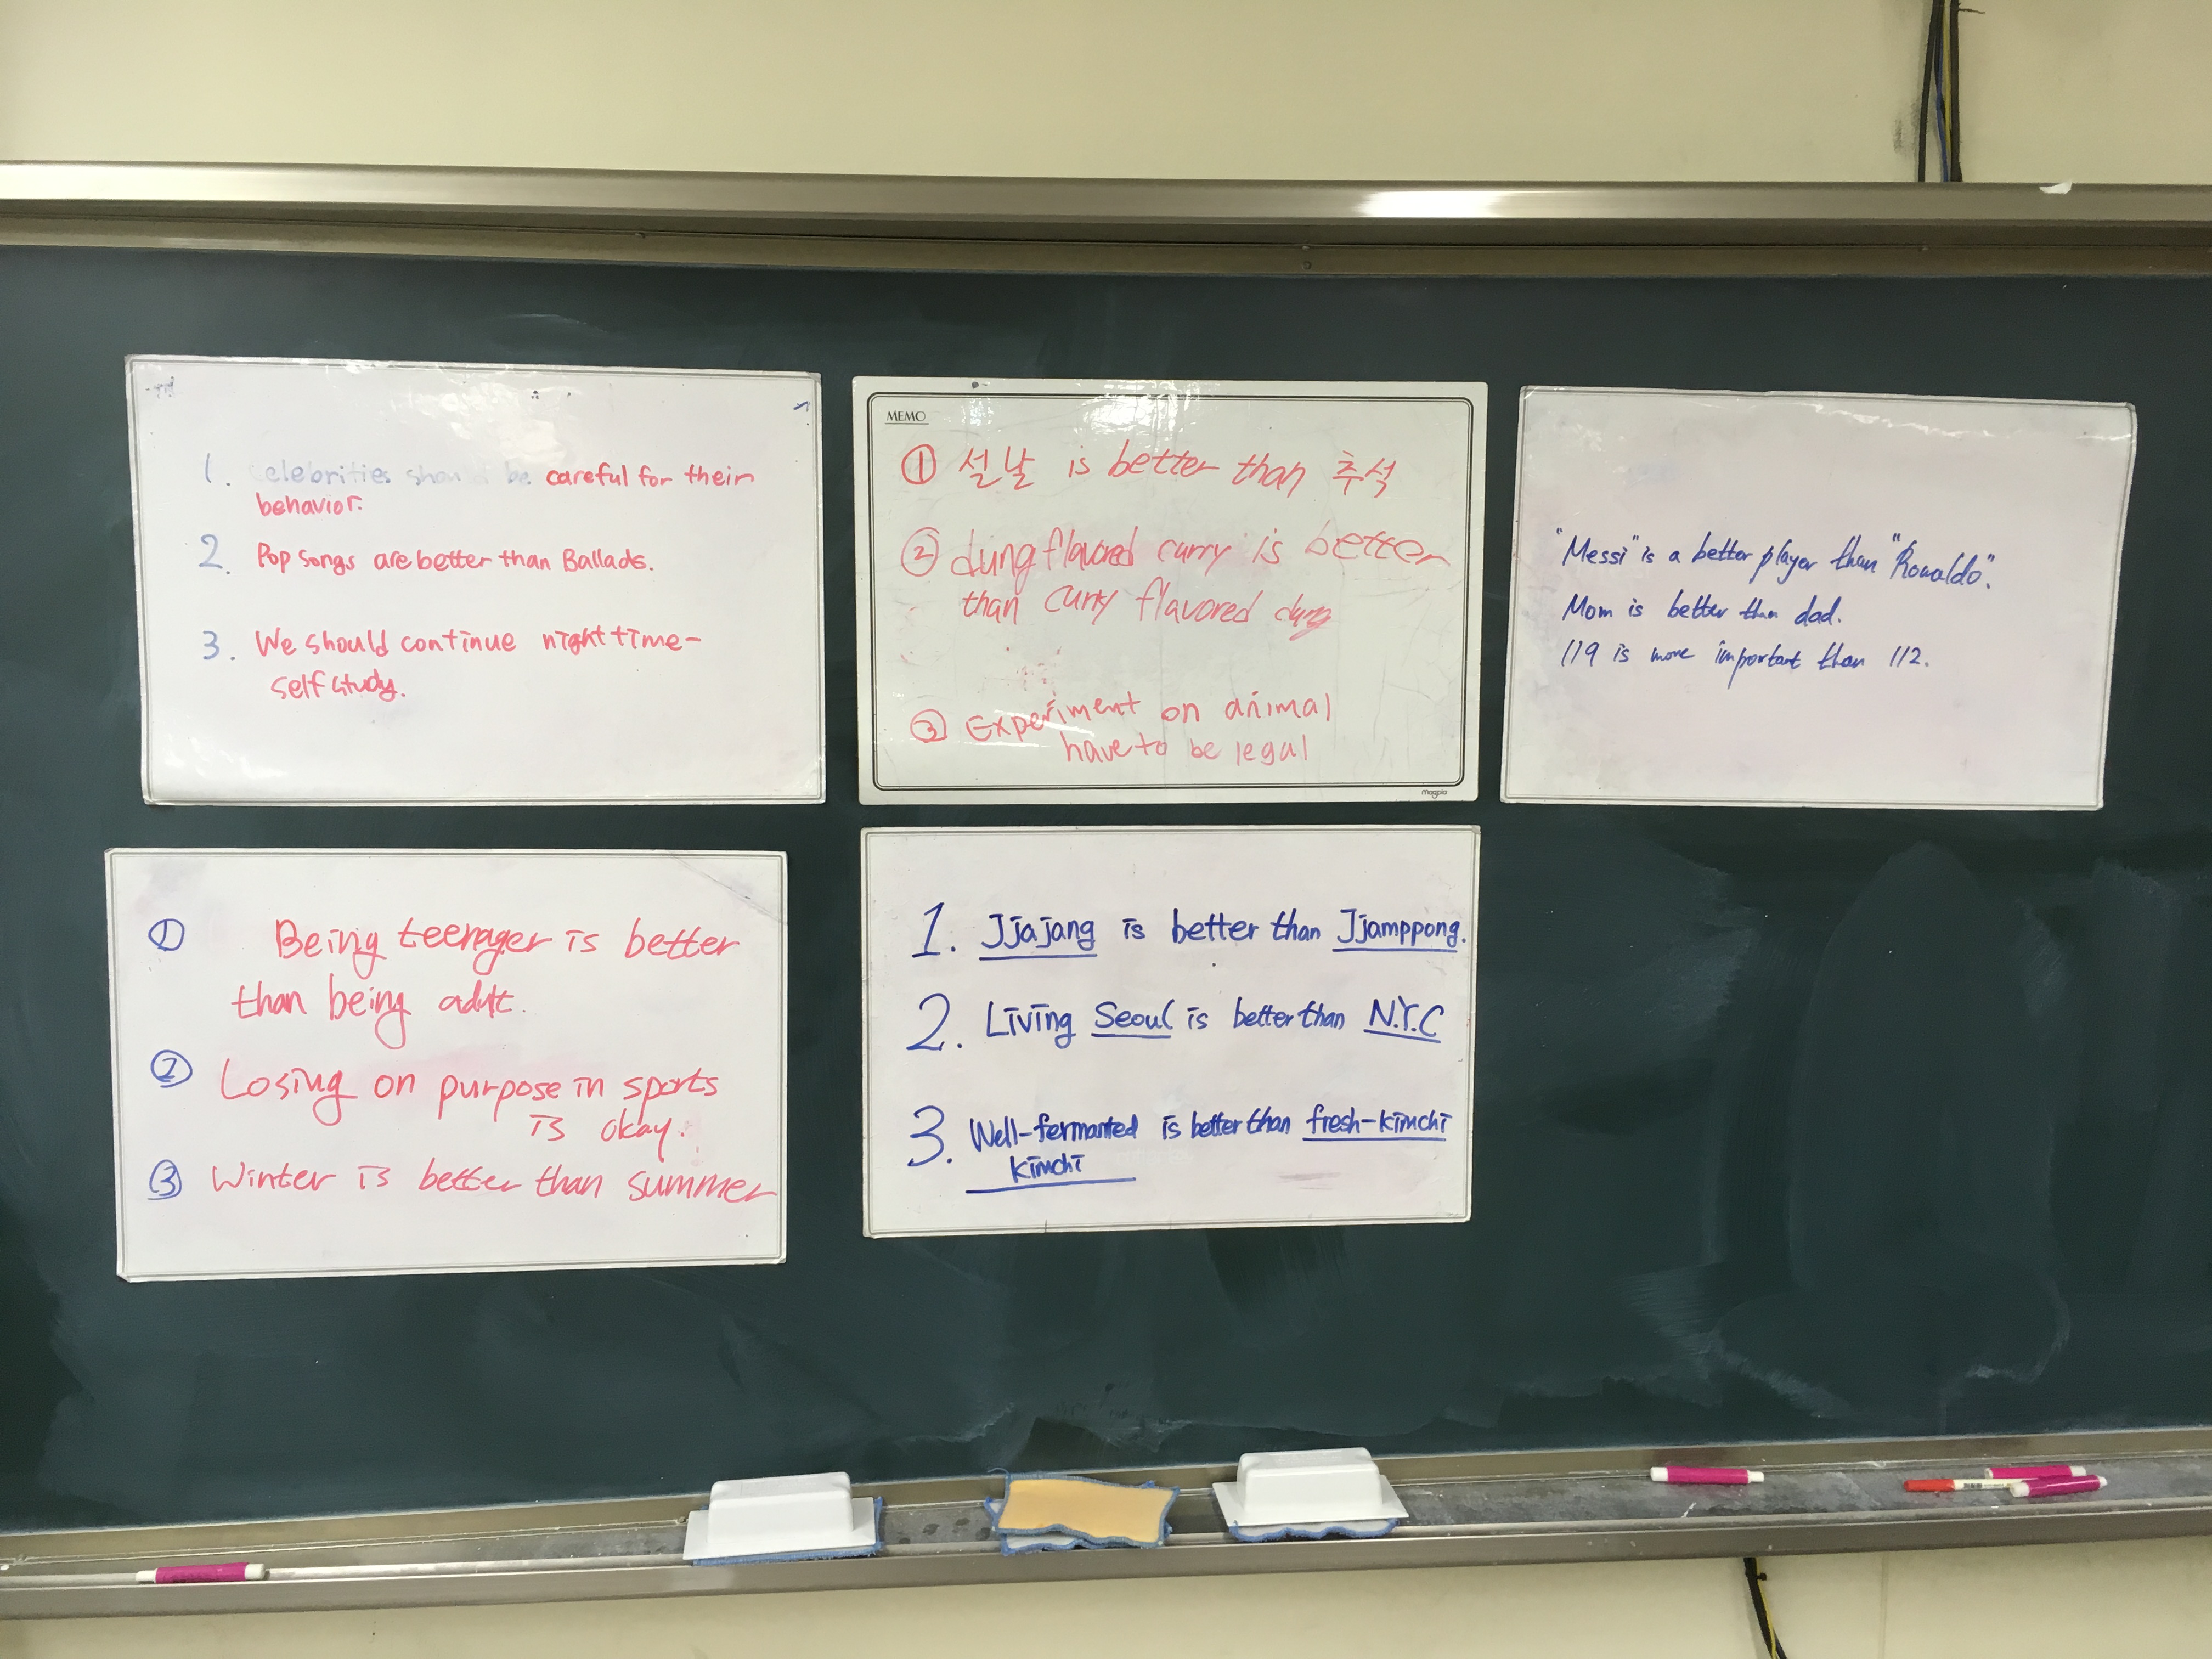 1. Celebrities should be careful for their
behavior.
2. Pop songs are better than Ballads.
3. We should continue night time-
self study.
MEMO
① 설날 is better than 추석
② dung flavored curry is better
than curry flavored dung
③ Experiment on animal
have to be legal
magpia
"Messi" is a better player than "Ronaldo".
Mom is better than dad.
119 is more important than 112.
① Being teenager is better
than being adult.
② Losing on purpose in sports
is okay.
③ Winter is better than summer
1. Jjajang is better than Jjamppong.
2. Living Seoul is better than N.Y.C
3. Well-fermanted is better than fresh-kimchi
kimchi